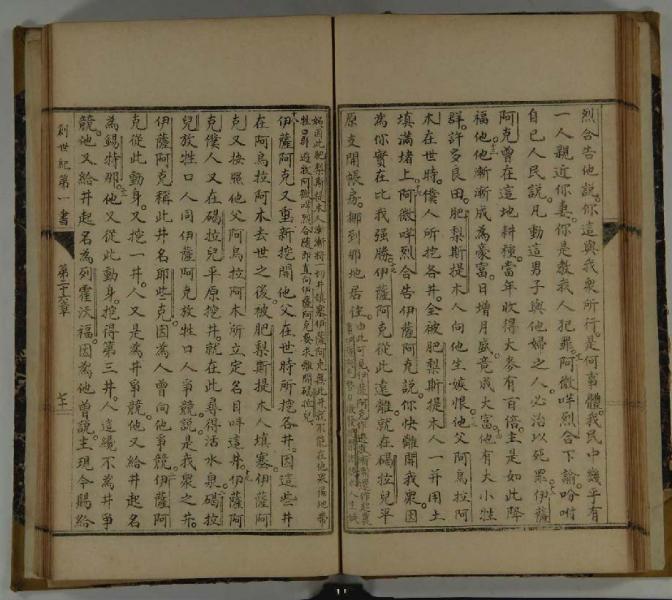 烈合告他說你這與我衆所行是何事體我民中幾乎有
一人親近你妻你是教我人犯罪阿微哶烈合下諭吩咐
自己人民說凡動這男子與他婦之人必治以死罪伊薩
阿克曾在這地耕種當年收得大麥有百倍主是如此降
福他他漸漸成為豪富日增月盛竟成大富他有大小牲
群許多良田肥梨斯提木人向他生嫉恨他父阿烏拉阿
木在世時僕人所挖各井全被肥梨斯提木人一并用土
填滿堵上阿微哶烈合告伊薩阿克說你快離開我衆因
為你實在比我強勝伊薩阿克從此遠離就在碣拉兒平
原支開帳房挪到那地居住
伊薩阿克又重新挖開他父在世時所挖各井因這些井
在阿烏拉阿木去世之後被肥梨斯提木人填塞伊薩阿
克又按照他父阿烏拉阿木所立定名目呌這井伊薩阿
克僕人又在碣拉兒平原挖井就在此尋得活水泉碣拉
兒放牲口人同伊薩阿克放牲口人爭競說是我衆之井
伊薩阿克稱此井名耶些克因為人曾向他爭競伊薩阿
克從此動身又挖一井人又是為井爭競他又給井起名
為錫特那他又從此動身挖得第三井人這纔不為井爭
競他又給井起名為列霍沃福因為他曾說主現今賜給
創世紀第一書
第二十六章